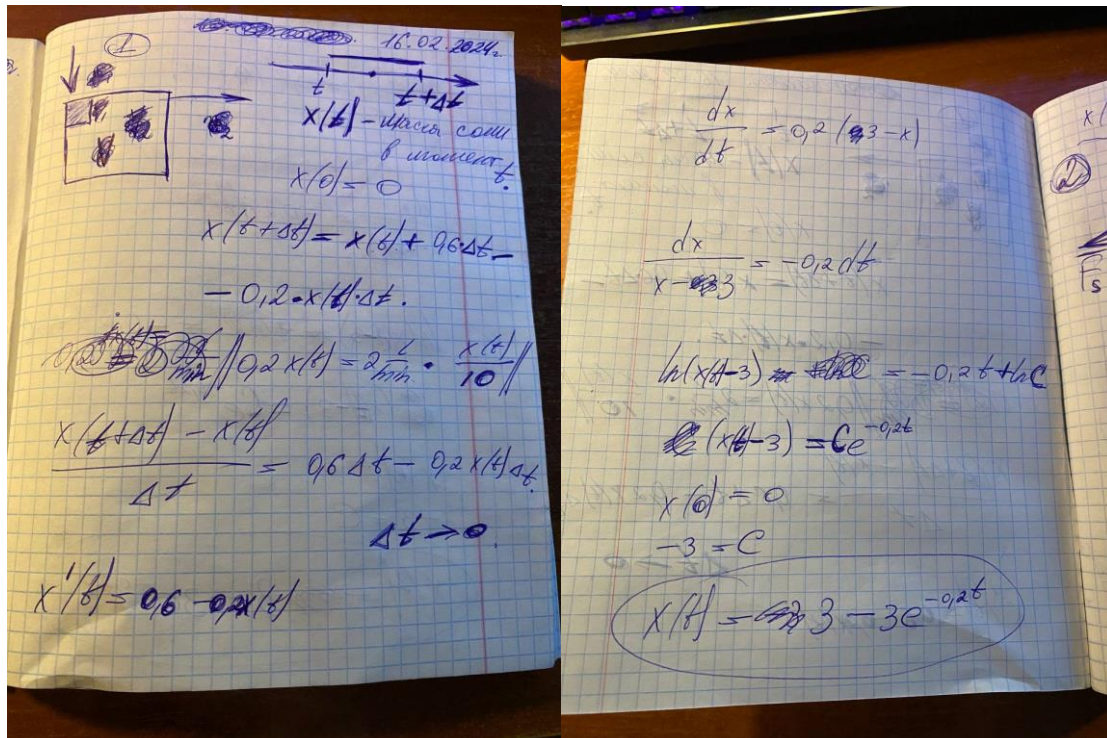 1
16.02.2024г.
t
t+Δt
x(t) – масса соли
в момент t.
x(0) = 0
x(t+Δt) = x(t) + 0,6·Δt –
– 0,2·x(t)·Δt.
||0,2x(t) = 2 L/min · x(t)/10||
(x(t+Δt) – x(t))/Δt = 0,6Δt – 0,2x(t)Δt.
Δt → 0.
x'(t) = 0,6 – 0,2x(t)
dx/dt = 0,2(3 – x)
dx/(x – 3) = –0,2dt
ln(x(t) – 3) = –0,2t + ln C
(x(t) – 3) = Ce^(–0,2t)
x(0) = 0
–3 = C
x(t) = 3 – 3e^(–0,2t)
x(
2
Fs